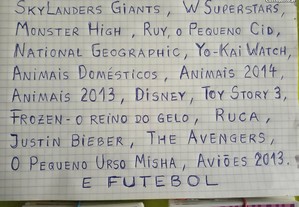 SKYLANDERS GIANTS, W SUPERSTARS,
MONSTER HIGH, RUY, O PEQUENO CID,
NATIONAL GEOGRAPHIC, YO-KAI WATCH,
ANIMAIS DOMÉSTICOS, ANIMAIS 2014,
ANIMAIS 2013, DISNEY, TOY STORY 3,
FROZEN - O REINO DO GELO, RUCA,
JUSTIN BIEBER, THE AVENGERS,
O PEQUENO URSO MISHA, AVIÕES 2013.
E FUTEBOL